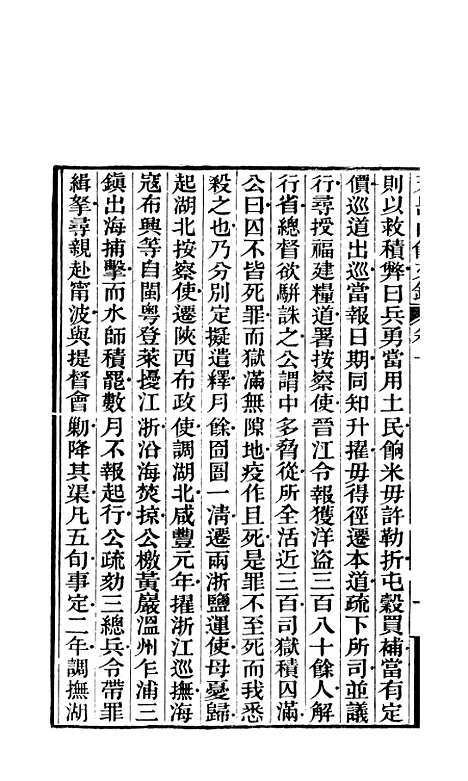 則以救積弊曰兵勇當用土民餉米毋許勒折屯穀買補當有定
價巡道出巡當報日期同知升擢毋得徑遷本道疏下所司並議
行尋授福建糧道署按察使晉江令報獲洋盜三百八十餘人解
行省總督欲駢誅之公謂中多脅從所全活近三百司獄積囚滿
公曰囚不皆死罪而獄滿無隙地疫作且死是罪不至死而我悉
殺之也乃分別定擬遣釋月餘囹圄一清遷兩浙鹽運使母憂歸
起湖北按察使遷陝西布政使調湖北咸豐元年擢浙江巡撫海
寇布興等自閩粵登萊擾江浙沿海焚掠公檄黃巖溫州乍浦三
鎭出海捕擊而水師積罷數月不報起行公疏劾三總兵令帶罪
緝拏尋親赴甯波與提督會勦降其渠凡五旬事定二年調撫湖